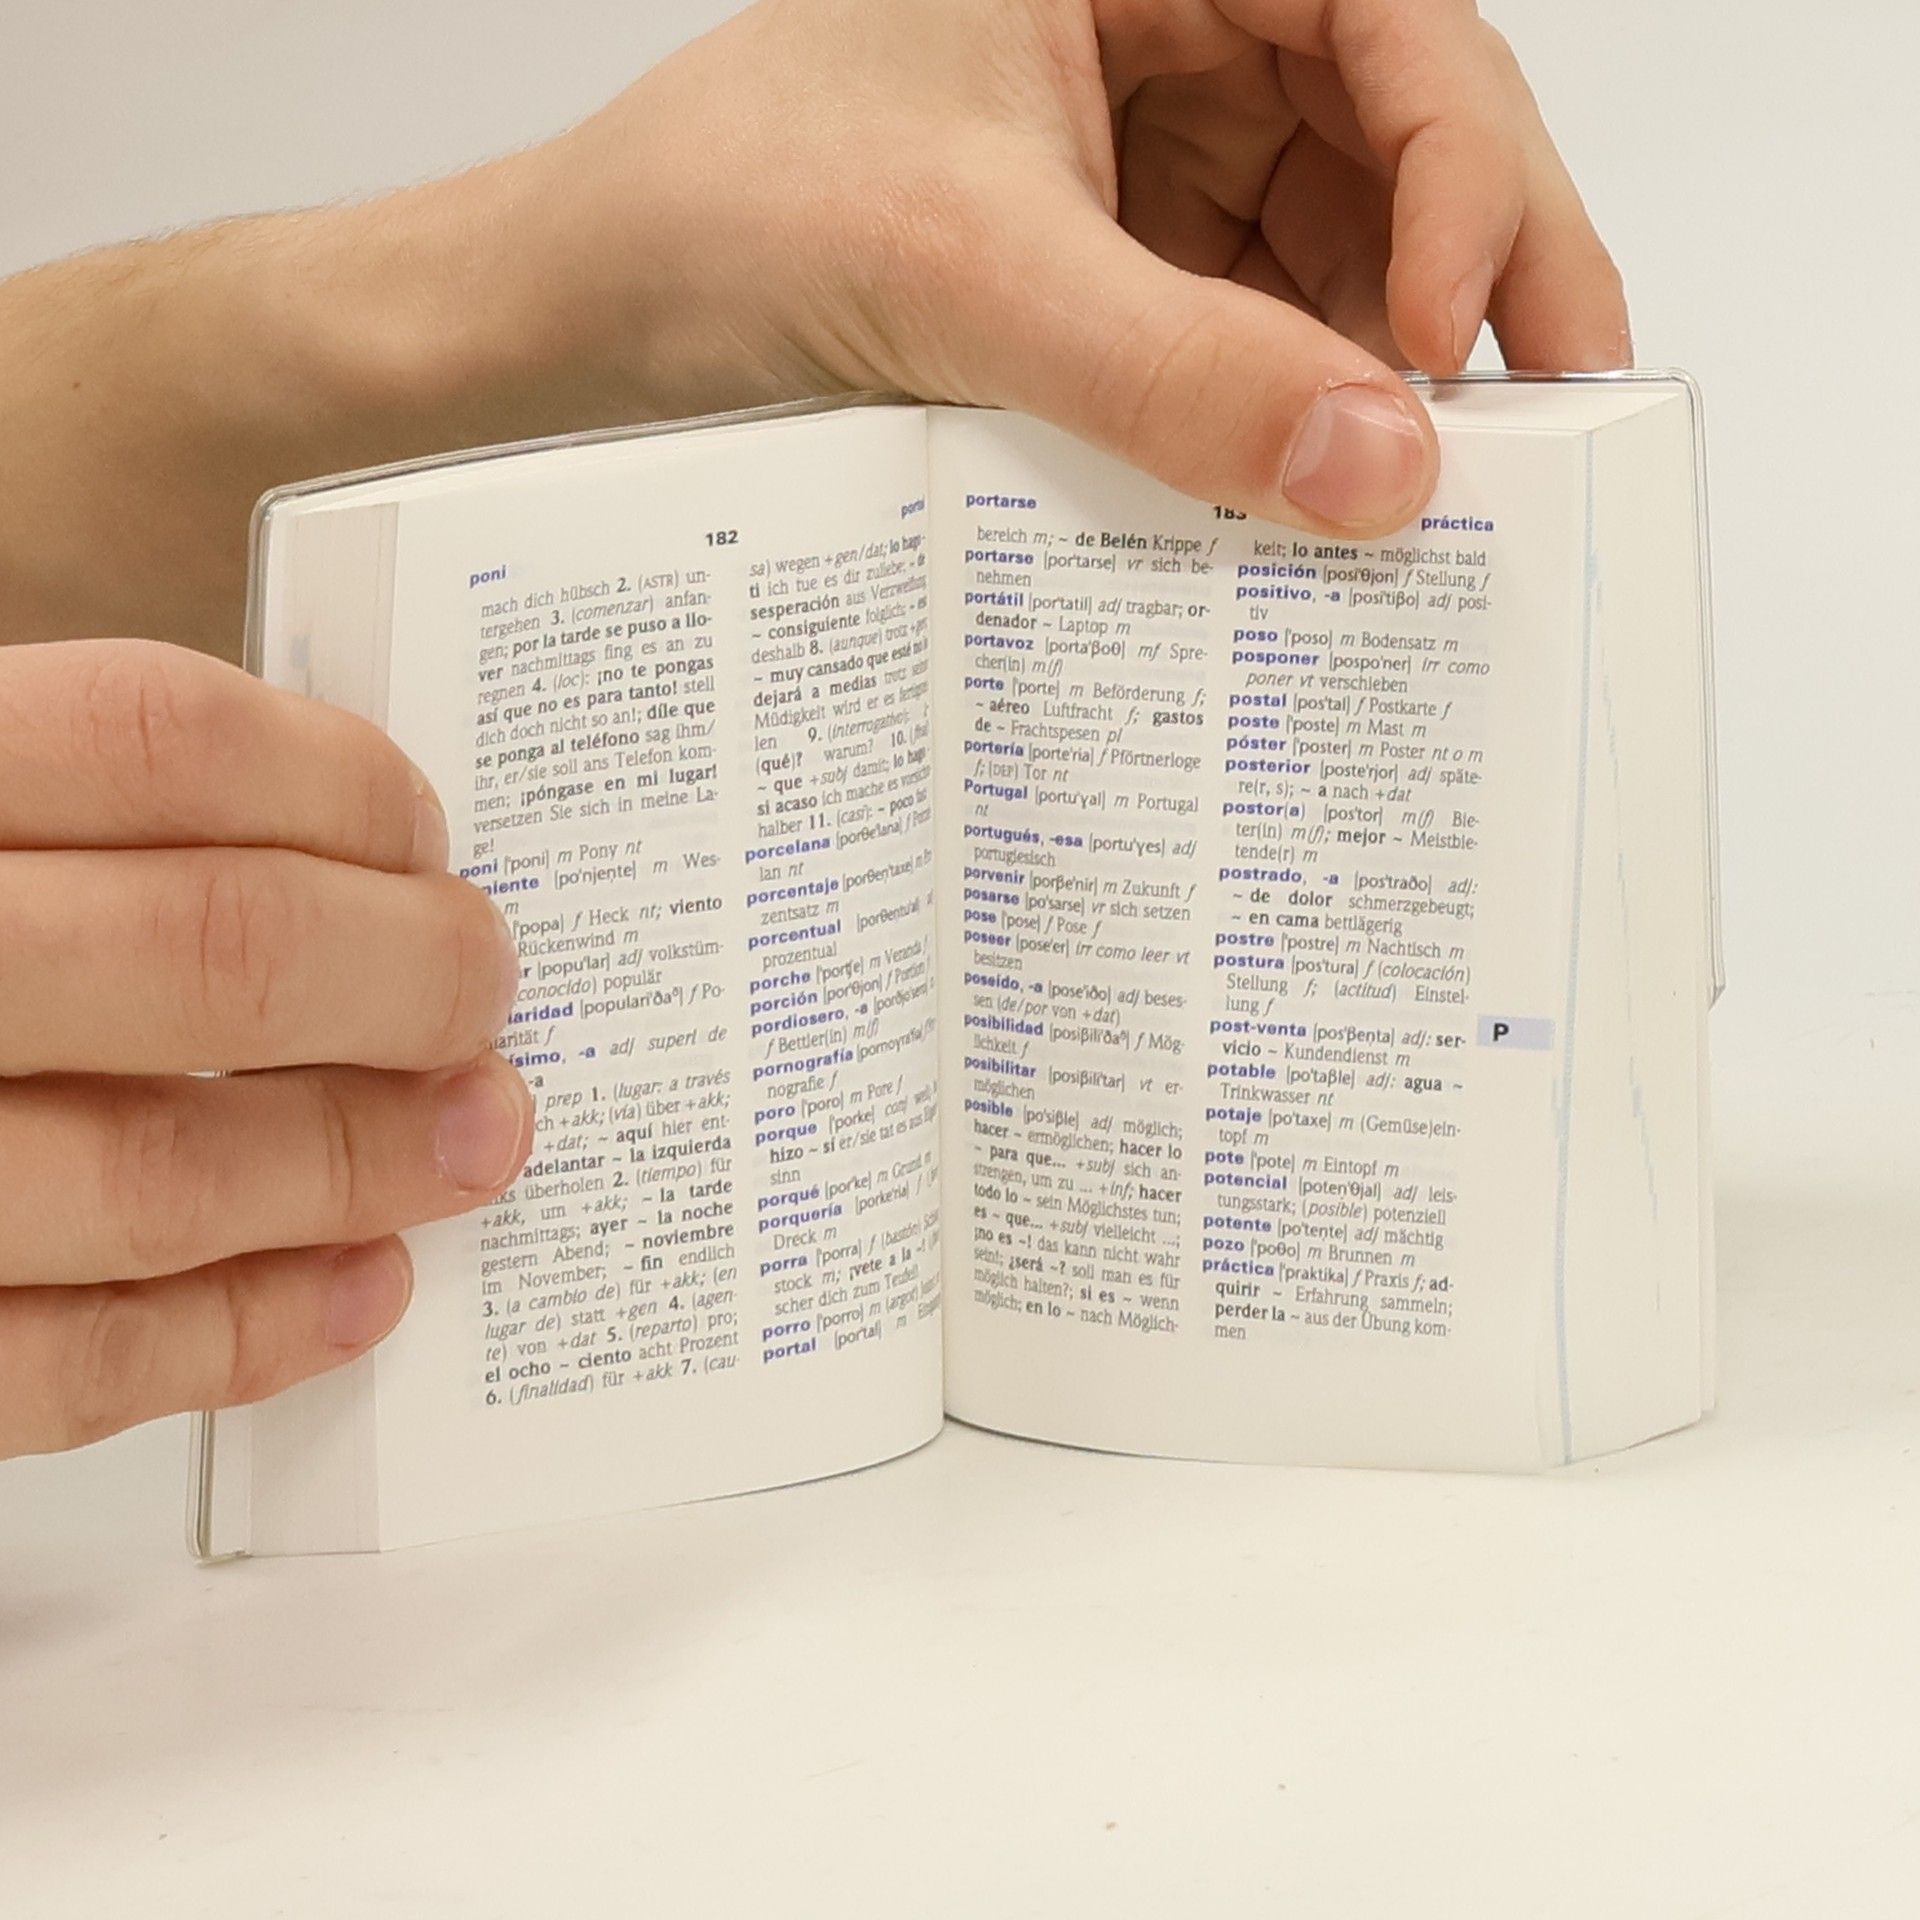 poni
182
mach dich hübsch 2. (ASTR) un-
tergehen 3. (comenzar) anfan-
gen; por la tarde se puso a llo-
ver nachmittags fing es an zu
regnen 4. (loc): ¡no te pongas
así que no es para tanto! stell
dich doch nicht so an!; díle que
se ponga al teléfono sag ihm/
ihr, er/sie soll ans Telefon kom-
men; ¡póngase en mi lugar!
versetzen Sie sich in meine La-
ge!
poni [ˈponi] m Pony nt
niente [poˈnjente] m Wes-
m
[ˈpopa] f Heck nt; viento
Rückenwind m
r [popuˈlar] adj volkstüm-
conocido) populär
laridad [populariˈðaᵟ] f Po-
larität f
ísimo, -a adj superl de
-a
prep 1. (lugar: a través
ch +akk; (vía) über +akk;
+dat; ~ aquí hier ent-
adelantar ~ la izquierda
ks überholen 2. (tiempo) für
+akk, um +akk; ~ la tarde
nachmittags; ayer ~ la noche
gestern Abend; ~ noviembre
im November; ~ fin endlich
3. (a cambio de) für +akk; (en
lugar de) statt +gen 4. (agen-
te) von +dat 5. (reparto) pro;
el ocho ~ ciento acht Prozent
6. (finalidad) für +akk 7. (cau-
sa) wegen +gen/dat; lo hago
ti ich tue es dir zuliebe; ~ de
sesperación aus Verzweiflung
~ consiguiente folglich; ~ es
deshalb 8. (aunque) trotz +gen
~ muy cansado que esté no
dejará a medias trotz seiner
Müdigkeit wird er es fertigs
len 9. (interrogativo):
(qué)? warum? 10. (final)
~ que +subj damit; lo hago
si acaso ich mache es vorsichts
halber 11. (casi): ~ poco fast
porcelana [porθeˈlana] f Porze
lan nt
porcentaje [porθenˈtaxe] m
zentsatz m
porcentual [porθentuˈal]
prozentual
porche [ˈportʃe] m Veranda f
porción [porˈθjon] f Portion f
pordiosero, -a
f Bettler(in) m(f)
pornografía [pornoɣraˈfia]
nografie f
poro [ˈporo] m Pore f
porque [ˈporke] conj weil;
hizo ~ sí er/sie tat es aus
sinn
porqué [porˈke] m Grund m
porquería [porkeˈria] f
Dreck m
porra [ˈporra] f (bastón)
stock m; ¡vete a la ~!
scher dich zum Teufel!
porro [ˈporro] m (argot)
portal [porˈtal] m
portarse
183
práctica
bereich m; ~ de Belén Krippe f
portarse [porˈtarse] vr sich be-
nehmen
portátil [porˈtatil] adj tragbar; or-
denador ~ Laptop m
portavoz [portaˈβoθ] mf Spre-
cher(in) m(f)
porte [ˈporte] m Beförderung f;
~ aéreo Luftfracht f; gastos
de ~ Frachtspesen pl
portería [porteˈria] f Pförtnerloge
f; (DEP) Tor nt
Portugal [portuˈɣal] m Portugal
nt
portugués, -esa [portuˈɣes] adj
portugiesisch
porvenir [porβeˈnir] m Zukunft f
posarse [poˈsarse] vr sich setzen
pose [ˈpose] f Pose f
poseer [poseˈer] irr como leer vt
besitzen
poseído, -a [poseˈiðo] adj beses-
sen (de/por von +dat)
posibilidad [posiβiliˈðaᵟ] f Mög-
lichkeit f
posibilitar [posiβiliˈtar] vt er-
möglichen
posible [poˈsiβle] adj möglich;
hacer ~ ermöglichen; hacer lo
~ para que... +subj sich an-
strengen, um zu ... +inf; hacer
todo lo ~ sein Möglichstes tun;
es ~ que... +subj vielleicht ...;
¡no es ~! das kann nicht wahr
sein!; ¿será ~? soll man es für
möglich halten?; si es ~ wenn
möglich; en lo ~ nach Möglich-
keit; lo antes ~ möglichst bald
posición [posiˈθjon] f Stellung f
positivo, -a [posiˈtiβo] adj posi-
tiv
poso [ˈposo] m Bodensatz m
posponer [pospoˈner] irr como
poner vt verschieben
postal [posˈtal] f Postkarte f
poste [ˈposte] m Mast m
póster [ˈposter] m Poster nt o m
posterior [posteˈrjor] adj späte-
re(r, s); ~ a nach +dat
postor(a) [posˈtor] m(f) Bie-
ter(in) m(f); mejor ~ Meistbie-
tende(r) m
postrado, -a [posˈtraðo] adj:
~ de dolor schmerzgebeugt;
~ en cama bettlägerig
postre [ˈpostre] m Nachtisch m
postura [posˈtura] f (colocación)
Stellung f; (actitud) Einstel-
lung f
post-venta [posˈβenta] adj: ser-
vicio ~ Kundendienst m
potable [poˈtaβle] adj: agua ~
Trinkwasser nt
potaje [poˈtaxe] m (Gemüse)ein-
topf m
pote [ˈpote] m Eintopf m
potencial [potenˈθjal] adj leis-
tungsstark; (posible) potenziell
potente [poˈtente] adj mächtig
pozo [ˈpoθo] m Brunnen m
práctica [ˈpraktika] f Praxis f; ad-
quirir ~ Erfahrung sammeln;
perder la ~ aus der Übung kom-
men
P